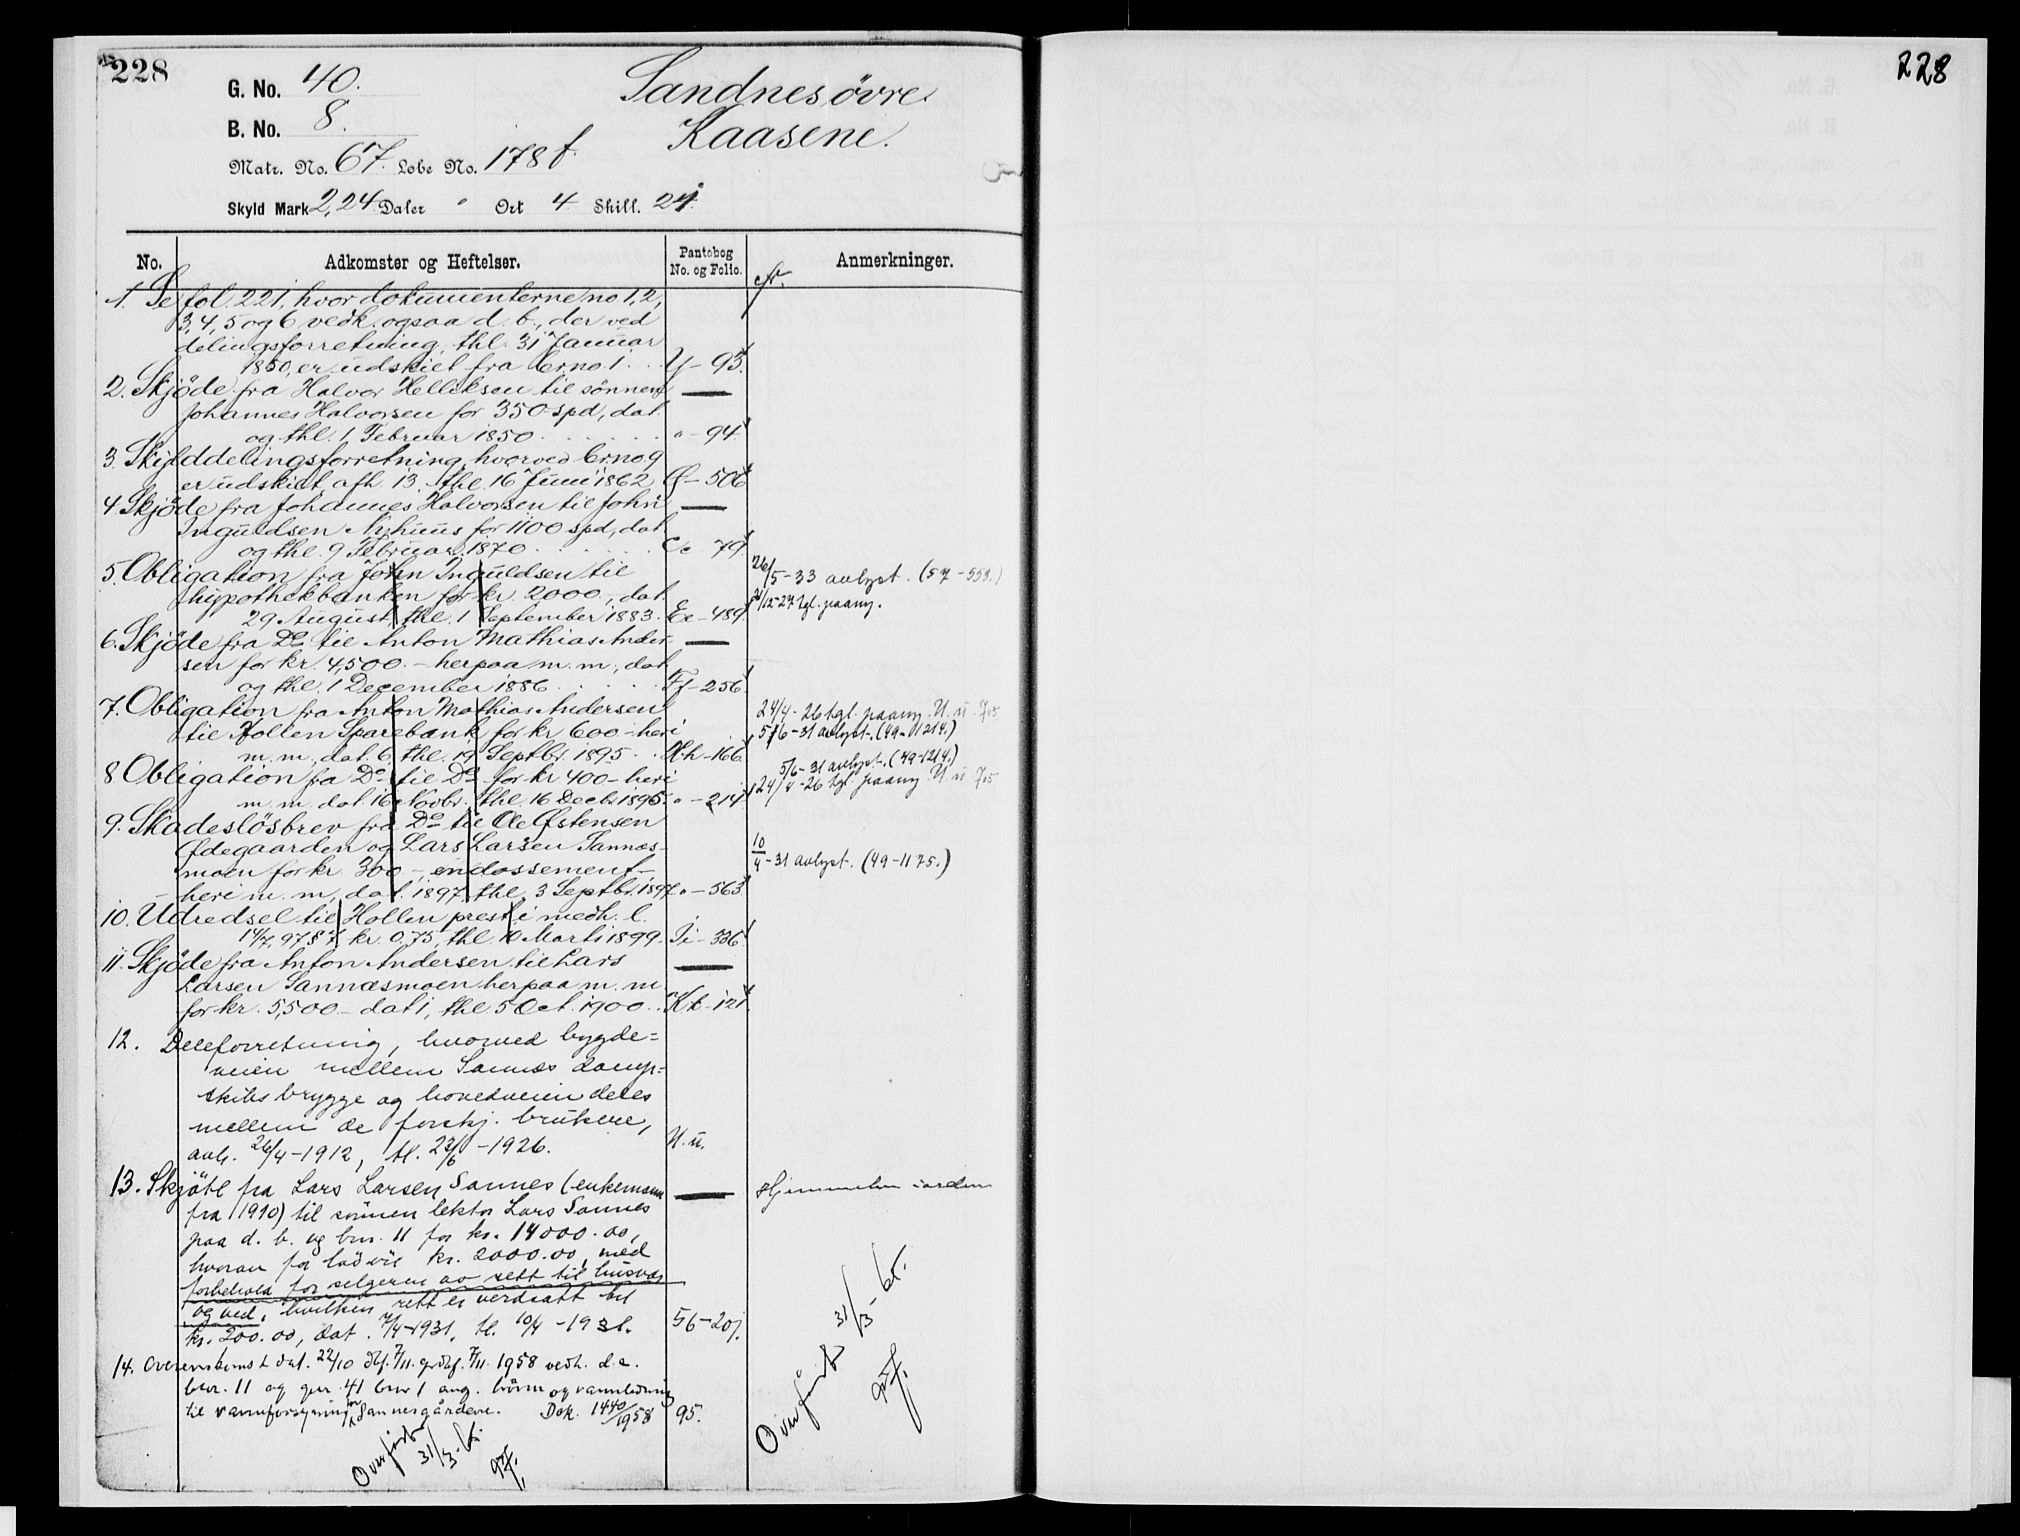 228
228
G. No. 40.
B. No. 8.
Matr. No. 67. Løbe No. 178 f.
Skyld Mark 2,24. Daler " Ort 4 Skill. 24.
Sandnes øvre.
Kaasene.
No. Adkomster og Heftelser. Pantebog No. og Folio. Anmerkninger.
cfr.
1. Se fol. 221, hvor dokumenterne no 1, 2,
3, 4, 5 og 6 vedk. ogsaa d. b., der ved
delingsforretning, thl. 31 Januar
1850, er udskilt fra br no 1. Y - 93.
2. Skjöde fra Halvor Helliksen til sönnen
Johannes Halvorsen for 350 spd, dat.
og thl. 1 Februar 1850. " - 94
3. Skylddelingsforretning, hvorved br. no. 9
er udskilt, afh. 13. thl. 16 Juni 1862 - 506
4. Skjöde fra Johannes Halvorsen til John
Inguldsen Nyhuus for 1100 spd, dat.
og thl. 9 Februar 1870. Cc 79.
5. Obligation fra John Inguldsen til
hypothekbanken for kr. 2000., dat.
29 August, thl. 1 September 1883. Ee - 489.
26/5 - 33 avlyst. (57 - 553.)
/12-27 tgl. paany.
6. Skjöde fra Do til Anton Mathias Ander-
sen for kr. 4,500. - herpaa m. m., dat.
og thl. 1 December 1886 Ff - 256.
7. Obligation fra Anton Mathias Andersen
til Hollen Sparebank for kr 600 - heri
m. m., dat. 6, thl. 19 Septbr. 1895. Hh - 166
24/4 - 26 tgl. paany. U. u. 705
5/6 - 31 avlyst. (49 - 1214.)
8 Obligation fra Do til Do for kr 400 - heri
m. m. dat. 16 Novbr., thl. 16 Decbr 1895. " - 214
5/6 - 31 avlyst. (49 - 1214.)
24/4 - 26 tgl paany U u 705
9. Skadeslösbrev fra Do til Ole Östensen
Ödegaarden og Lars Larsen Sannes-
moen for kr. 300 -, endossement -
heri m. m., dat. 1897, thl. 3 Septbr. 1897 " - 563
10/4 - 31 avlyst. (49 - 1175.)
10. Udredsel til Hollen prest i medh. l.
14/7. 97 § 7, kr. 0.75, thl. 10 Marts 1899. Ii - 336
11. Skjöde fra Anton Andersen til Lars
Larsen Sannæsmoen herpaa m. m.
for kr. 5,500 - dat 1, thl. 5 Oct. 1900. Kk - 121.
12. Deleforretning, hvorved bygde-
veien mellem Sannes damp-
skibsbrygge og hovedveien deles
mellem de forskj. brukere,
avh. 26/4 - 1912, tl. 23/6 - 1926. U. u.
13. Skjöte fra Lars Larsen Sannes (enkemann
fra 1910) til sönnen lektor Lars Sannes
paa d. b. og bnr. 11 for kr. 14000.00,
hvorav for lösöre kr. 2000.00, med
forbehold for selgeren av rett til husvær
og ved, hvilken rett er verdsatt til
kr. 200.00, dat. 7/4-1931, tl. 10/4 - 1931. 56 - 207.
Hjemmelen i orden
14. Overenskomst dat. 22/10 dbf. 7/11. 1958 vedk. d. e.
bnr. 11 og gnr. 41 bnr 1 ang. brönn og vannledning
til vannforsyning for Sannesgårdene. Dok. 1440/1958 95.
Overfört 31/3 - 
Overfört 31/3 -